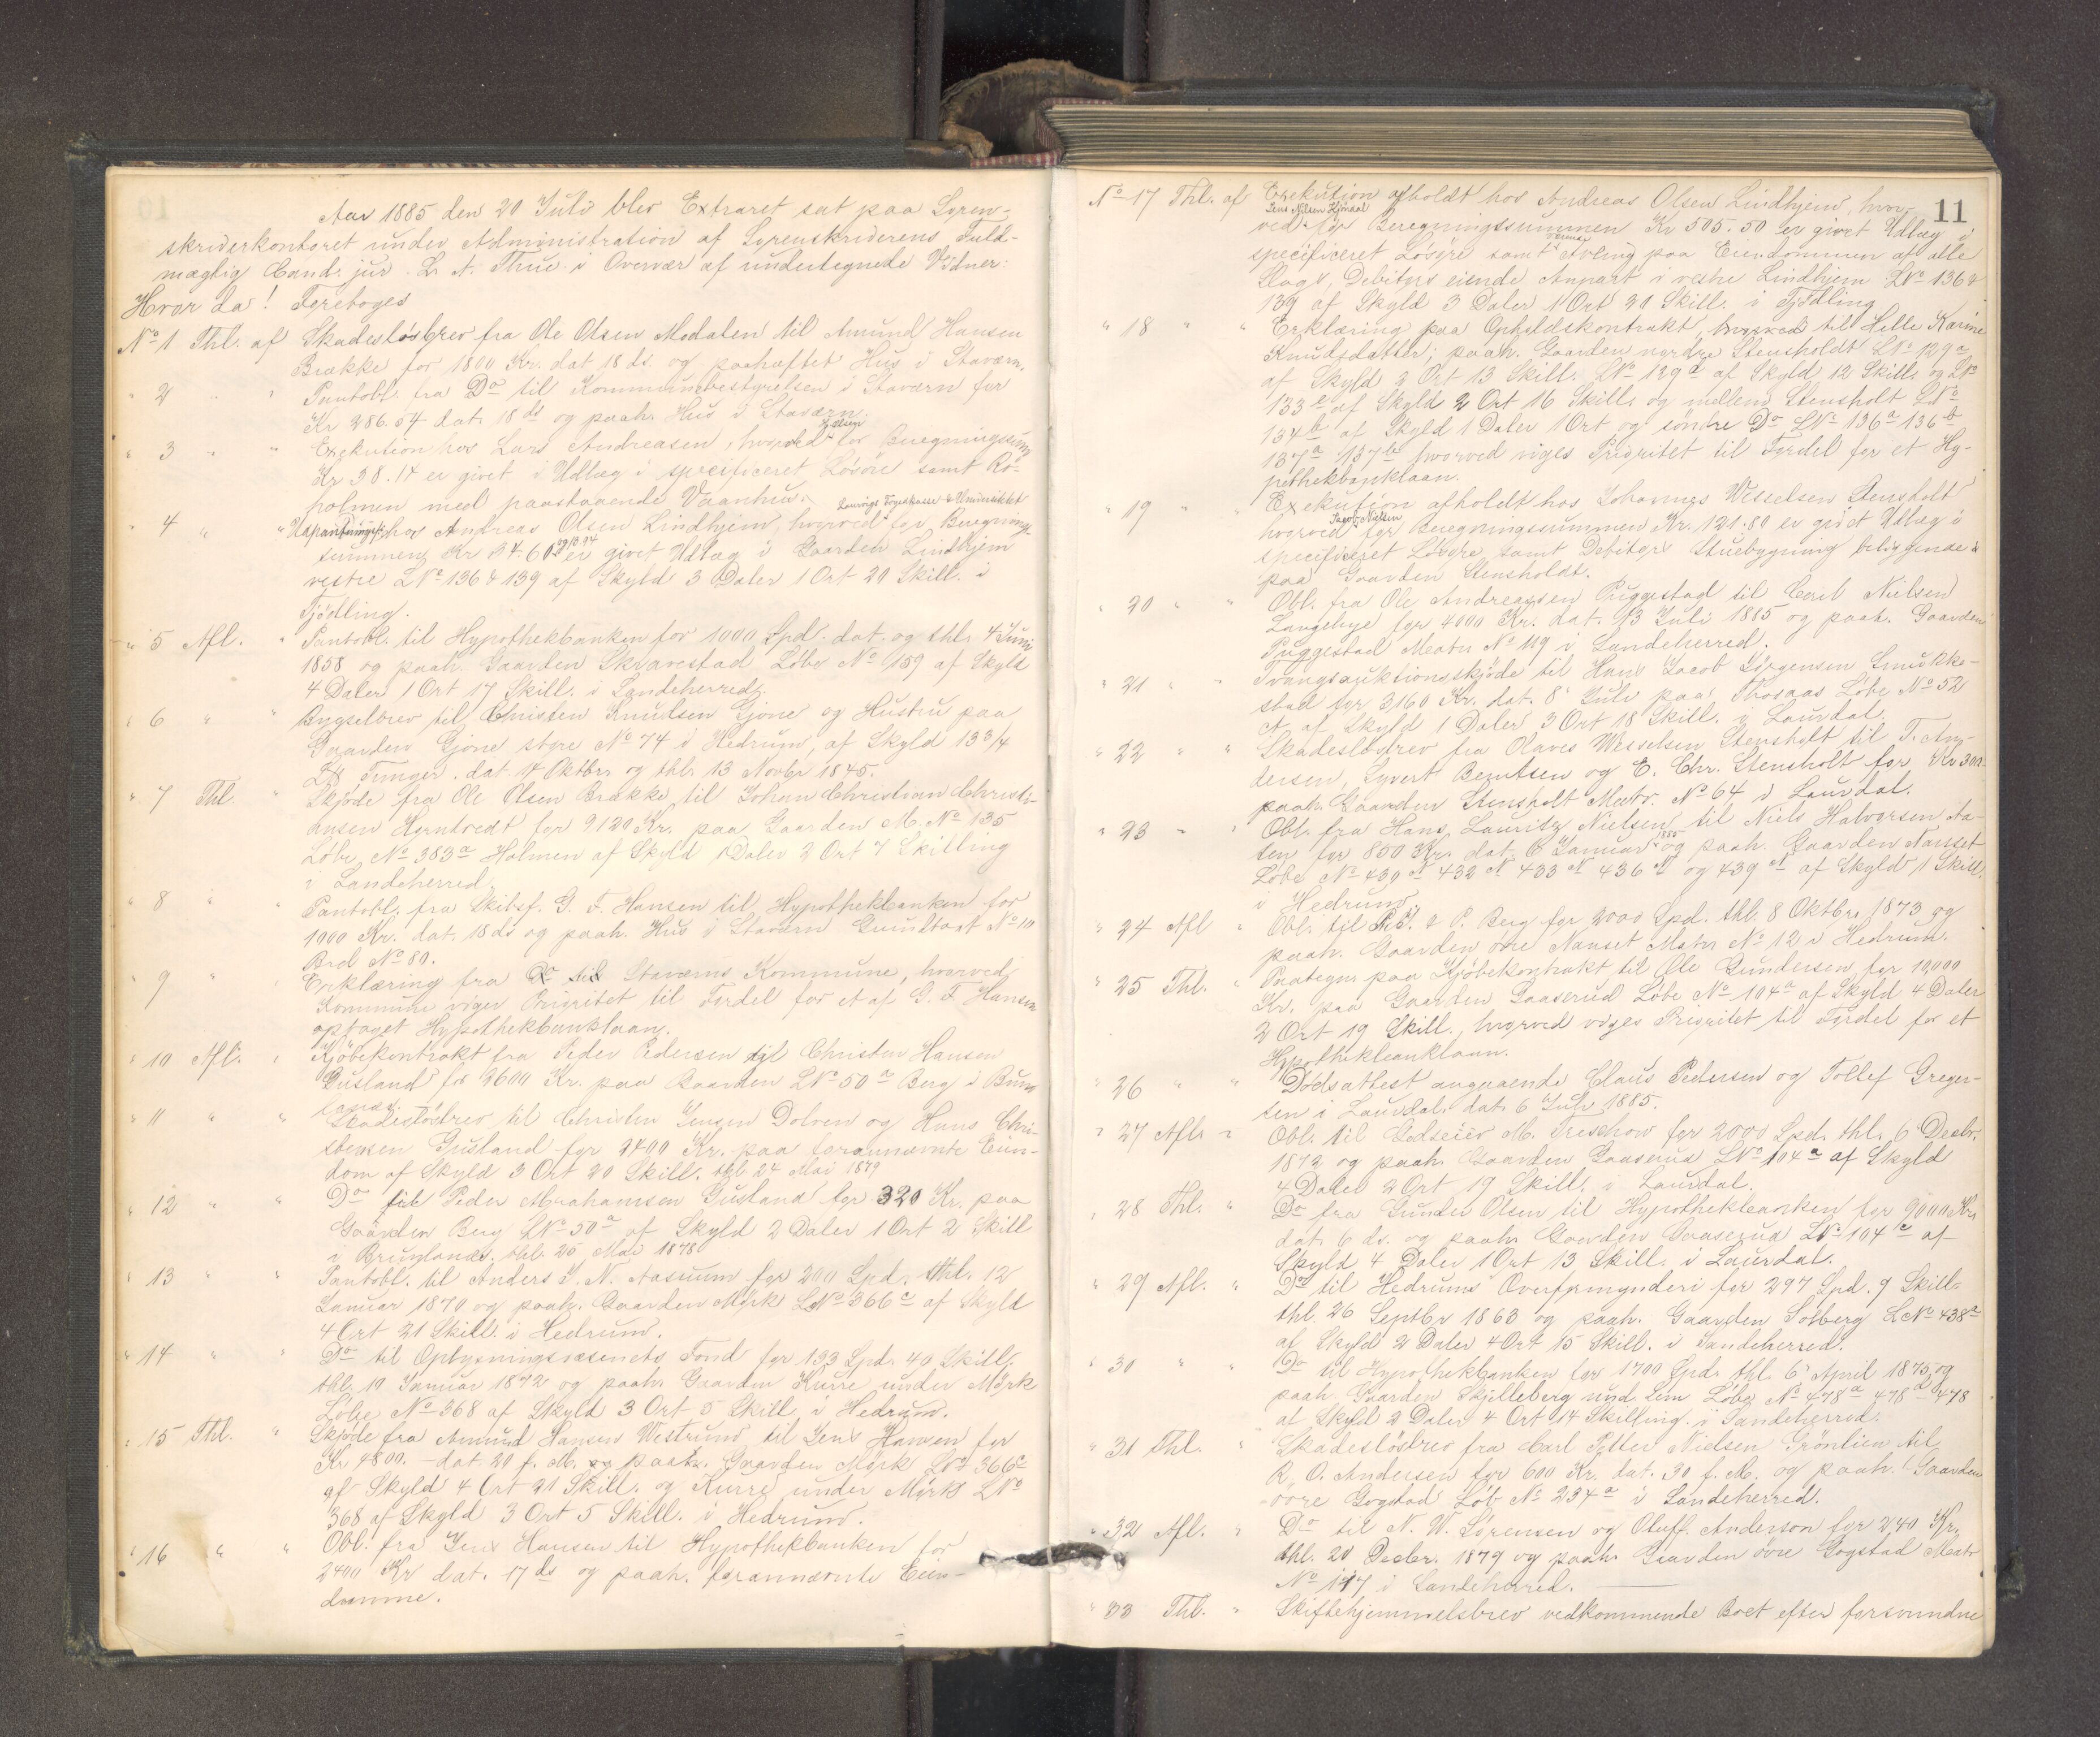 Aar 1885 den 20 Juli blev Extraret sat paa Soren-
skriverkontoret under Administration af Sorenskriverens Fuld-
mægtig Cand. jur. L. A. Thue i Overvær af undertegnede Vidner:
Hvor da! Foretoges
No 1 Thl. af Skadesløsbrev fra Ole Olsen Modalen til Amund Hansen
Brække for 1800 Kr. dat 18 ds. og paahæftet Hus i Staværn.
" 2 " " Pantobl. fra Do til Kommunebestyrelsen i Staværn for
Kr 286.54 dat. 18 ds og paah. Hus i Staværn.
" 3 " " Exekution hos Lars Andreasen, hvorved for Beregningssum
Kr 38.14 er givet i Udlæg i specificeret Løsøre samt Ro-
holmen med paastaaende Vaanhus.
Laurvigs Fogeskasse & Universitetet
" 4 " " Udpantning hos Andreas Olsen Lindhjem, hvorved for Beregnings-
summen Kr 84.60 er givet Udlæg i Gaarden Lindhjem
vestre LNo 136 & 139 af Skyld 3 Daler 1 Ort 20 Skill. i
Tjødling.
" 5 Afl. " Pantobl. til Hypothekbanken for 1000 Spd. dat. og thl. 4 Juni
1858 og paah. Gaarden Skvarestad Løbe No 159 af Skyld
4 Daler 1 Ort 17 Skill. i Sandeherred.
" 6 " " Bygselbrev til Christen Knudsen Gjone og Hustru paa
Gaarden Gjone store No 74 i Hedrum, af Skyld 13 3/4
Tunger. dat. 14 Oktbr. og thl. 13 Novbr 1845.
" 7 Thl. " Skjøde fra Ole Olsen Brække til Johan Christian Christi-
ansen Horntvedt for 9120 Kr. paa Gaarden M. No 135
Løbe No 383a Holmen af Skyld 1 Daler 2 Ort 7 Skilling
i Sandeherred.
" 8 " " Pantobl. fra Skibsf. G. F. Hansen til Hypothekbanken for
1000 Kr. dat. 18 ds og paah. Hus i Staværn Grundtaxt No 10
Brd No 80.
" 9 " " Erklæring fra Do til Staværns Kommune, hvorved
Kommune viger Prioritet til Fordel for et af G. F. Hansen
optaget Hypothekbanklaan.
" 10 Afl. " Kjøbekontrakt fra Peder Pedersen til Christen Hansen
Gusland for 2600 Kr. paa Gaarden LNo 50a Berg i Brun
lanæs.
" 11 " " Skadesløsbrev til Christen Jensen Dolven og Hans Chri-
stensen Gusland for 2400 Kr. paa forannævnte Eien-
dom af Skyld 3 Ort 20 Skill. thl. 24 Mai 1879
" 12 " " Do til Peder Abrahamsen Gusland for 320 Kr. paa
Gaarden Berg LNo 50a af Skyld 2 Daler 1 Ort 2 Skill
i Brunlanæs. thl. 25 Mai 1878
" 13 " " Pantobl. til Anders J. N. Aasrum for 200 Spd. thl. 12
Januar 1870 og paah. Gaarden Mørk LNo 366c af Skyld
4 Ort 21 Skill. i Hedrum.
" 14 " " Do til Oplysningsvæsenets Fond for 133 Spd. 40 Skill.
thl. 19 Januar 1872 og paah. Gaarden Kurre under Mørk
Løbe No 368 af Skyld 3 Ort 5 Skill. i Hedrum.
" 15 Thl. " Skjøde fra Amund Hansen Westrum til Jens Hansen for
Kr 4800. - dat 20 f. M. og paah. Gaarden Mørk LNo 366c
af Skyld 4 Ort 21 Skill. og Kurre under Mørk LNo
368 af Skyld 3 Ort 5 Skill. i Hedrum.
" 16 " " Obl. fra Jens Hansen til Hypothekbanken for
2400 Kr dat. 17 ds og paah. forannævnte Eien-
domme.
11
No 17 Thl. af Exekution afholdt hos Andreas Olsen Lindhjem, hvor-
ved for Beregningssummen Kr 505.50 er givet Udlæg i
specificeret Løsøre samt Avling paa Eiendommen af alle
Slags, Debitors eiende Anpart i vestre Lindhjem LNo 136 &
139 af Skyld 3 Daler 1 Ort 20 Skill. i Tjødling
" 18 " " Erklæring paa Opholdskontrakt, hvorved til Helle Karine
Knudsdatter; paah. Gaarden nordre Stensholdt LNo 129a
af Skyld 2 Ort 13 Skill. LNo 129d af Skyld 12 Skill. og LNo
133e af Skyld 2 Ort 16 Skill. og mellem Stensholt LNo
134b af Skyld 1 Daler 1 Ort og søndre Do LNo 136a 136b
137a 137b hvorved viges Prioritet til Fordel for et Hy-
pothekbanklaan.
" 19 " " Exekution afholdt hos Johannes Wesselsen Stensholt
Jacob Nielsen
hvorved for Beregningssummen Kr. 121.80 er givet Udlæg i
specificeret Løsøre samt Debitors Stuebygning beliggende
paa Gaarden Stensholdt.
" 20 " " Obl. fra Ole Andreassen Puggestad til Carl Nielsen
Langebye for 4000 Kr. dat. 13 Juli 1885 og paah. Gaarden
Puggestad Matr No 119 i Sandeherred.
" 21 " " Tvangsauktionsskjøde til Hans Jacob Jørgensen Smukke-
stad for 3160 Kr. dat. 8 Juli paa Thosaas Løbe No 52
A af Skyld 1 Daler 3 Ort 18 Skill. i Laurdal.
" 22 " " Skadesløsbrev fra Olaves Wesselsen Stensholt til T. An-
dersen, Syvert Berntsen og E. Chr. Stensholt for Kr 300.
paah. Gaarden Stensholt Matr. No 64 i Laurdal.
" 23 " " Obl. fra Hans Lauritz Nielsen til Niels Halvorsen Aa-
sen for 850 Kr. dat. 6 Januar 1885 og paah. Gaarden Nanset
Løbe No 430 432 433 436 og 439 af Skyld 1 Skill.
i Hedrum.
" 24 Afl " Obl. til P. J. & P. Berg for 2000 Spd. thl. 8 Oktbr. 1873 og
paah. Gaarden øvre Nanset Matr No 12 i Hedrum.
" 25 Thl. " Paategn. paa Kjøbekontrakt til Ole Gundersen for 10,000
Kr. paa Gaarden Gaaserud Løbe No 104a af Skyld 4 Daler
2 Ort 19 Skill., hvorved viges Prioritet til Fordel for et
Hypothekbanklaan.
" 26 " " Dødsattest angaaende Claus Pedersen og Tollef Greger-
sen i Laurdal. dat. 6 Juli 1885.
" 27 Afl. " Obl. til Godseier M. Treschow for 2000 Spd. thl. 6 Decbr.
1872 og paah. Gaarden Gaaserud LNo 104a af Skyld
4 Daler 2 Ort 19 Skill. i Laurdal.
" 28 Thl. " Do fra Gunder Olsen til Hypothekbanken for 9000 Kr.
dat. 6 ds. og paah. Gaarden Gaaserud LNo 104a af
Skyld 4 Daler 1 Ort 13 Skill. i Laurdal.
" 29 Afl. " Do til Hedrums Overformynderi for 297 Spd. 9 Skill.
thl. 26 Septbr 1863 og paah. Gaarden Solberg LNo 438a
af Skyld 2 Daler 4 Ort 15 Skill. i Sandeherred.
" 30 " " Do til Hypothekbanken for 1700 Spd. thl. 6 April 1875 og
paah. Gaarden Skjelleberg und. Lem Løbe No 478a 478d 478
af Skyld 2 Daler 4 Ort 14 Skilling. i Sandeherred.
" 31 Thl. " Skadesløsbrev fra Carl Petter Nielsen Grönlien til
R. O. Andersen for 600 Kr. dat. 30 f. M. og paah. Gaarden
øvre Gogstad Løb No 234a i Sandeherred.
" 32 Afl. " Do til N. W. Sørensen og Oluff. Anderson for 240 Kr.
thl. 20 Decbr. 1879 og paah. Gaarden øvre Gogstad Matr
No 117 i Sandeherred.
" 33 Thl. " Skiftehjemmelsbrev vedkommende Boet efter forsvundne